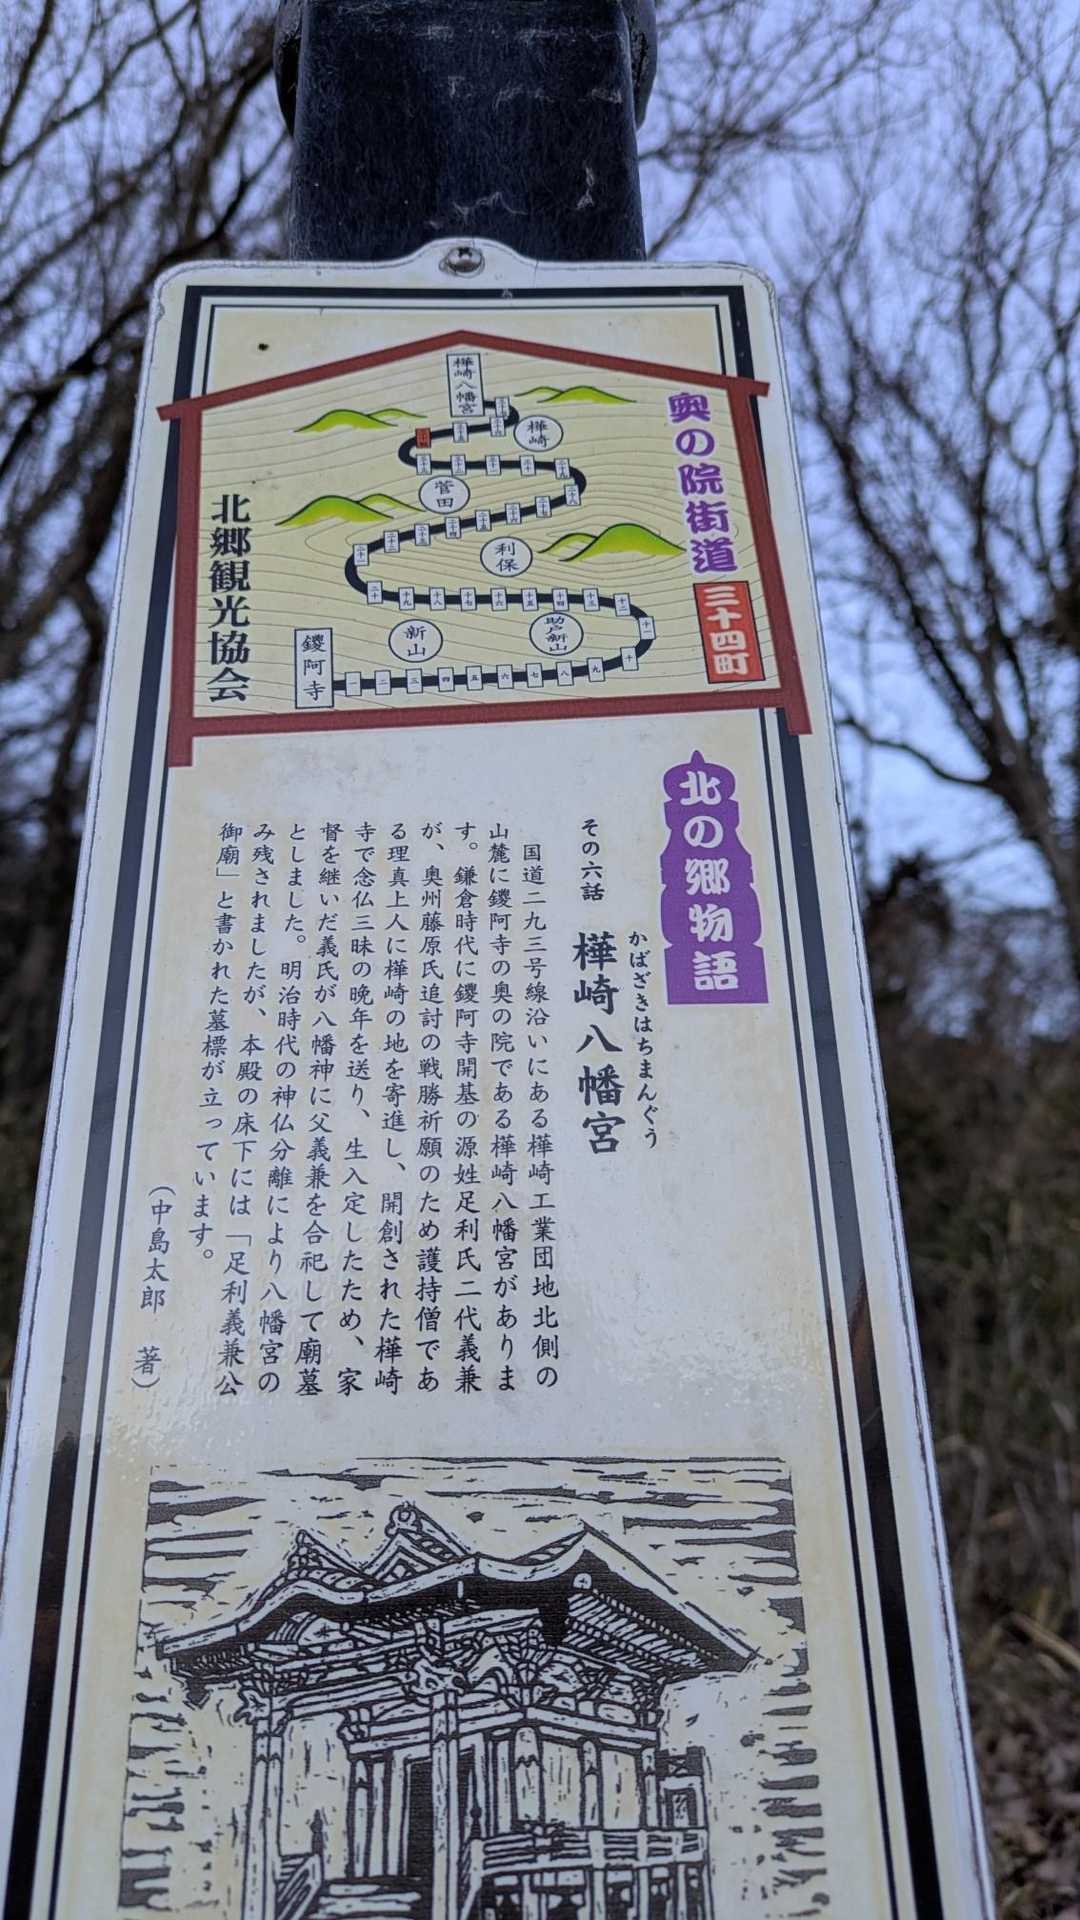 奥の院街道
三十四町
樺崎八幡宮
樺崎
菅田
利保
助戸新山
新山
鑁阿寺
一
二
三
四
五
六
七
八
九
十
十一
十二
十三
十四
十五
十六
十七
十八
十九
二十
二十一
二十二
二十三
二十四
二十五
二十六
二十七
二十八
二十九
北郷観光協会
北の郷物語
その六話
かばざきはちまんぐう
樺崎八幡宮
国道二九三号線沿いにある樺崎工業団地北側の
山麓に鑁阿寺の奥の院である樺崎八幡宮がありま
す。鎌倉時代に鑁阿寺開基の源姓足利氏二代義兼
が、奥州藤原氏追討の戦勝祈願のため護持僧であ
る理真上人に樺崎の地を寄進し、開創された樺崎
寺で念仏三昧の晩年を送り、生入定したため、家
督を継いだ義氏が八幡神に父義兼を合祀して廟墓
としました。明治時代の神仏分離により八幡宮の
み残されましたが、本殿の床下には「足利義兼公
御廟」と書かれた墓標が立っています。
（中島太郎　著）